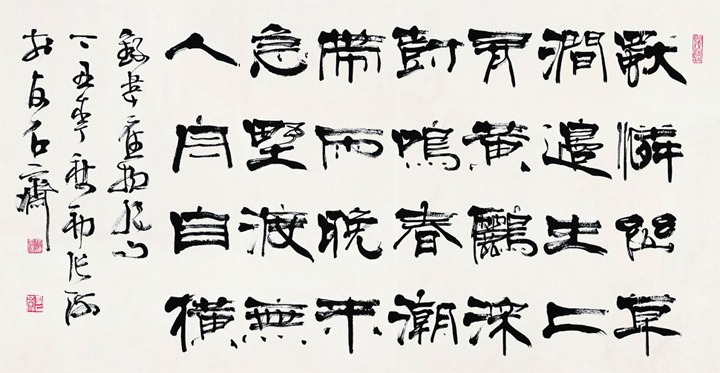 獨憐幽草
澗邊生上
有黃鸝深
樹鳴春潮
帶雨晚來
急野渡無
人舟自橫
韋應物
丁丑年秋初張海
石齋